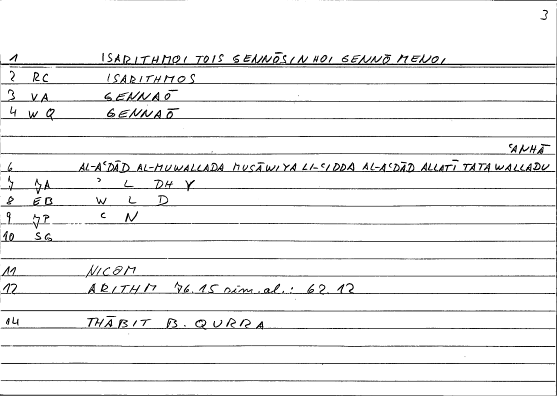 3
1 ISARITHMOI TOIS GENNŌSIN HOI GENNŌMENOI
2 RC ISARITHMOS
3 VA GENNAŌ
4 WQ GENNAŌ
ʿANHĀ
6 AL-AʿDĀD AL-MUWALLADA MUSĀWIYA LI-ʿIDDA AL-AʿDĀD ALLATĪ TATAWALLADU
7 JA ʾ L DH Y
8 EB W L D
9 JP ʿ N
10 SG
11 NICOM
12 ARITHM 76.15 sim.al.: 62.12
14 THĀBIT B. QURRA